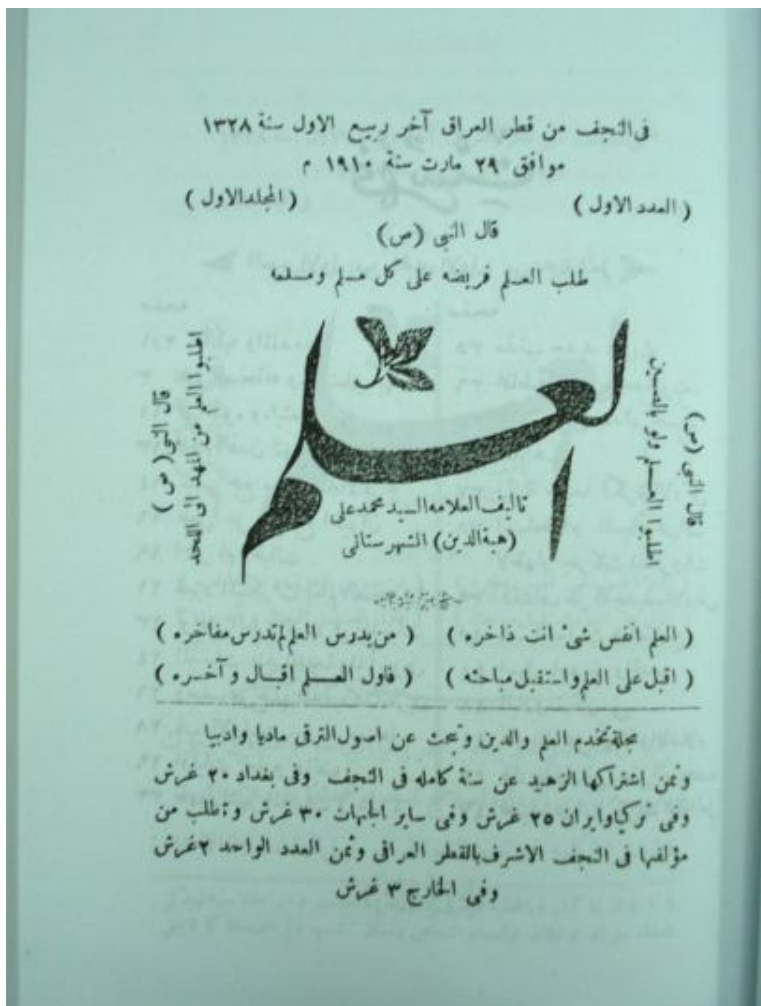 فى النجف من قطر العراق آخر ربيع الاول سنة ١٣٢٨
موافق ٢٩ مارت سنة ١٩١٠ م
( العدد الاول ) ( المجلد الاول )
قال النبى (ص)
طلب العلم فريضه على كل مسلم ومسلمه
قال النبى (ص)
اطلبوا العلم ولو بالصين
العلم
اطلبوا العلم من المهد الى اللحد
قال النبى (ص)
تاليف العلامه السيد محمد على
(هبة الدين) الشهرستانى
( العلم انفس شئ انت ذاخره ) ( من يدرس العلم لم تدرس مفاخره )
( اقبل على العلم واستقبل مباحثه ) ( فاول العلم اقبال وآخره )
مجلة تخدم العلم والدين وتبحث عن اصول الترقى ماديا وادبيا
وثمن اشتراكها الزهيد عن سنة كامله فى النجف وفى بغداد ٢٠ غرش
وفى تركيا وايران ٢٥ غرش وفى ساير الجهات ٣٠ غرش وتطلب من
مؤلفها فى النجف الاشرف بالقطر العراقى وثمن العدد الواحد ٢ غرش
وفى الخارج ٣ غرش